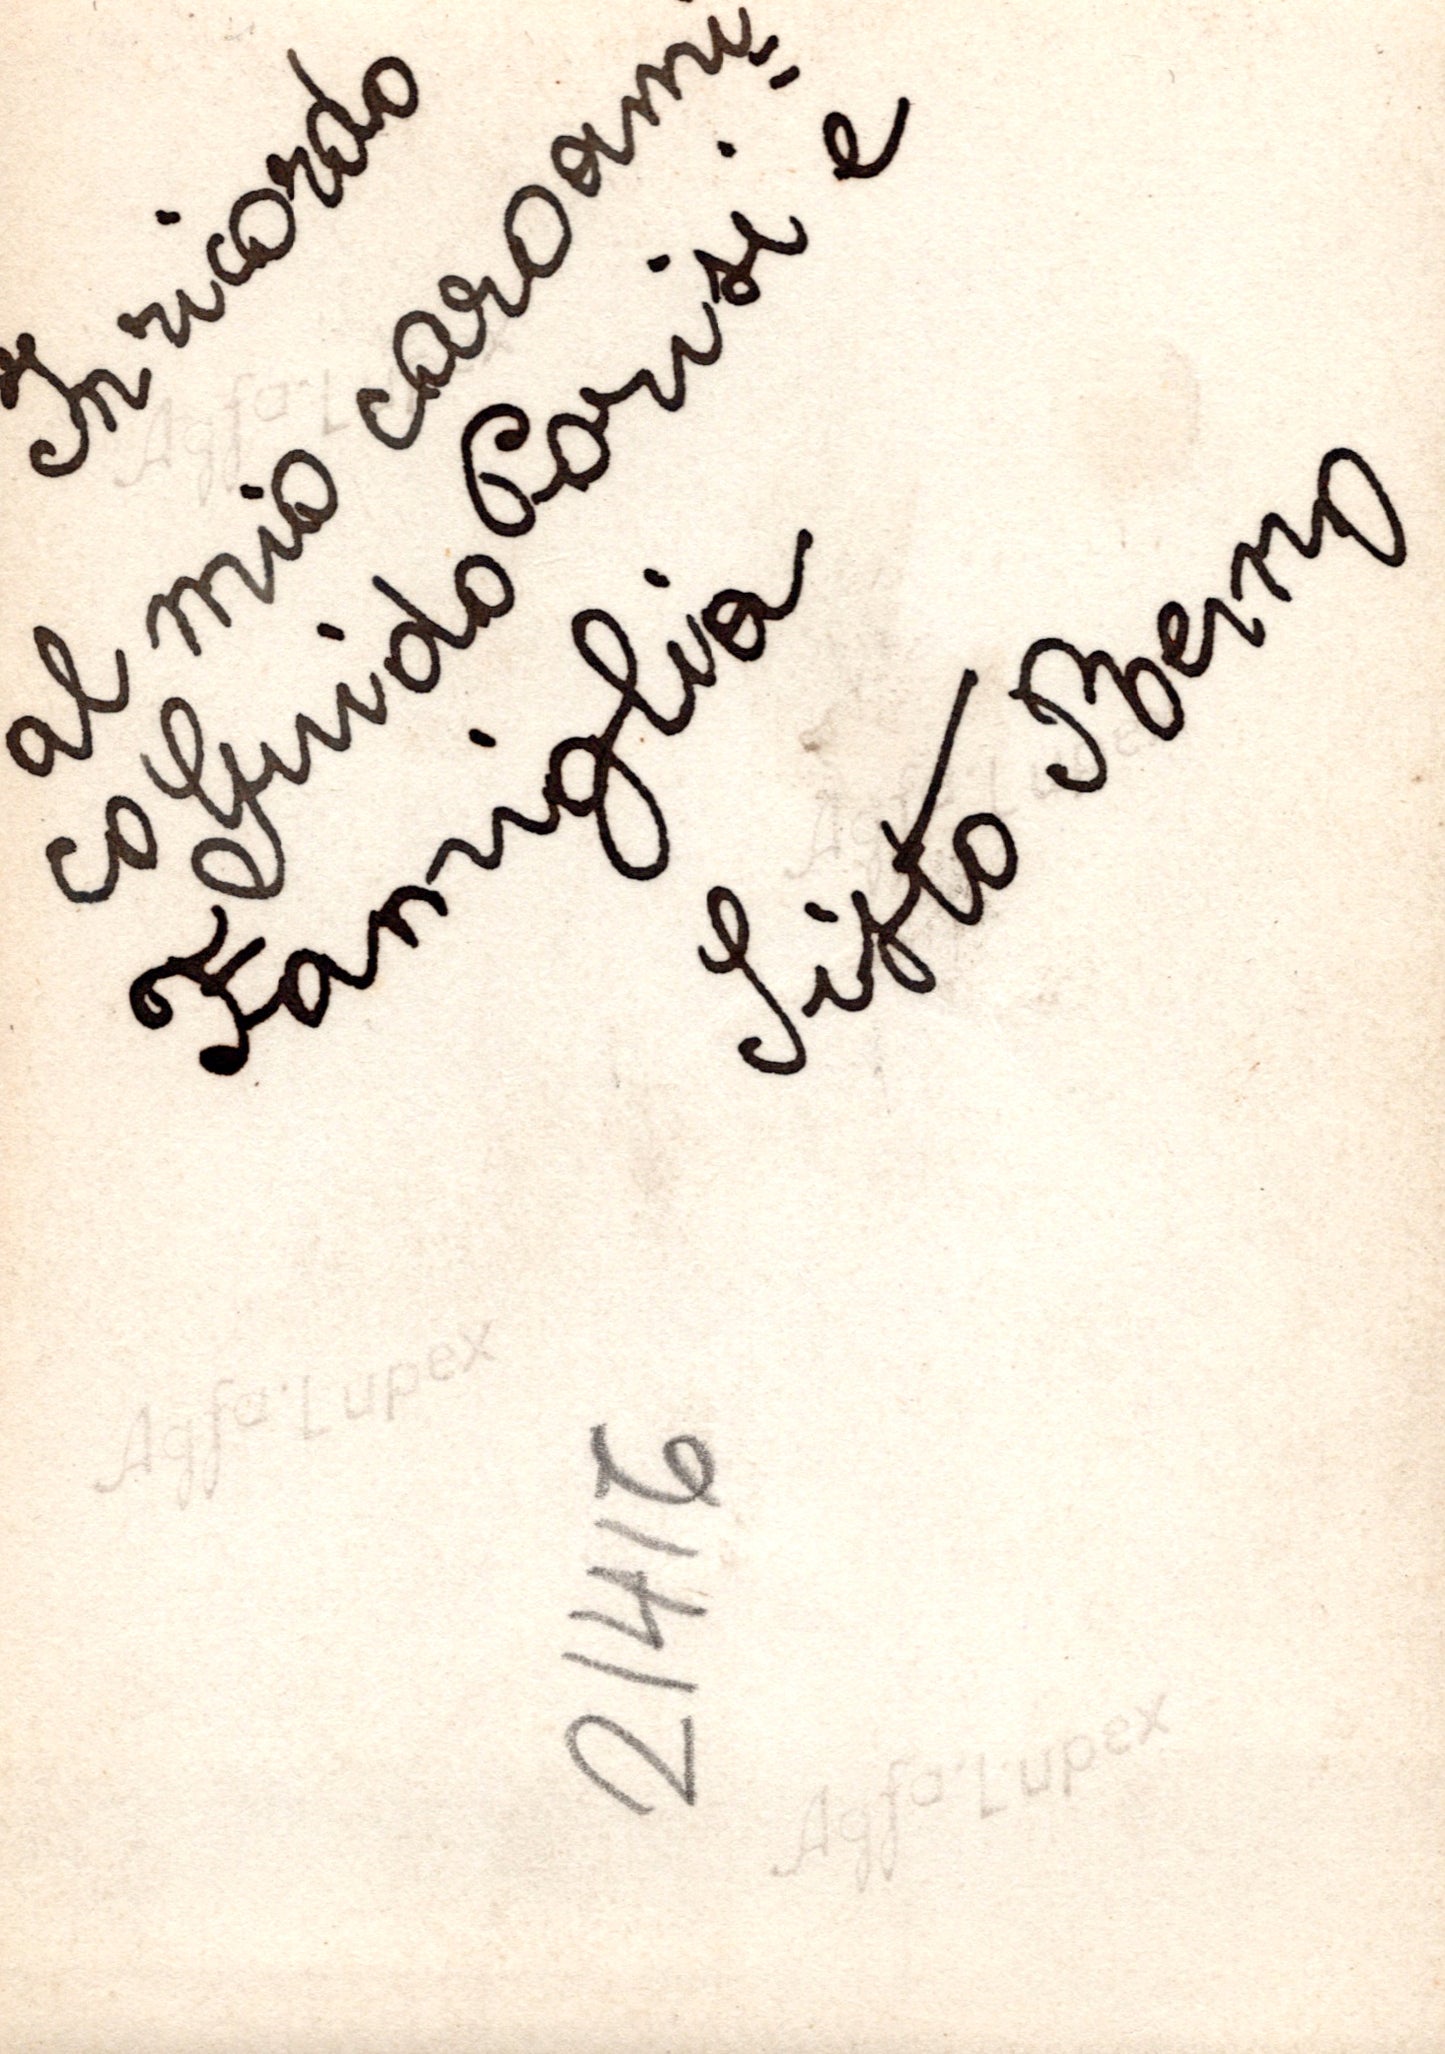 In ricordo
al mio caro ami"
co Guido Parisi e
Famiglia
Sisto Berno
Agfa-Lupex
Agfa-Lupex
Agfa-Lupex
2/4/6
Agfa-Lupex